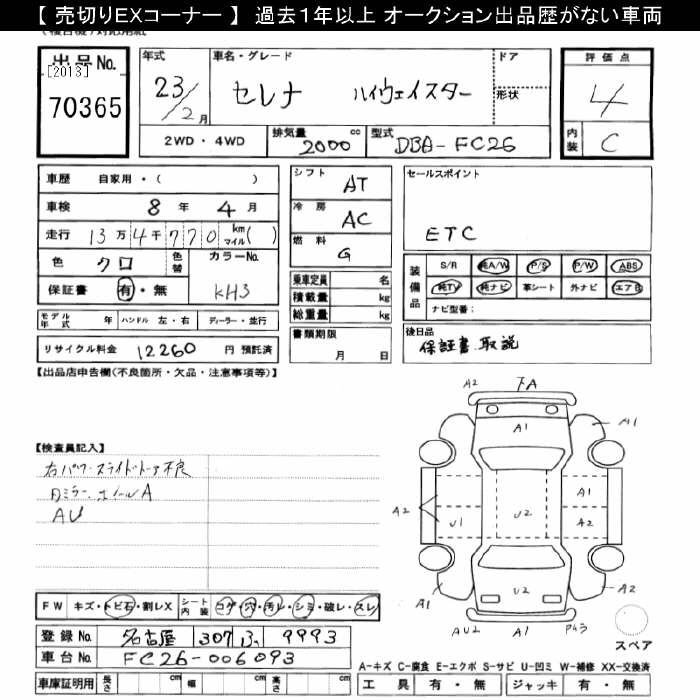 【 売切りEXコーナー 】 過去1年以上 オークション出品歴がない車両
出品No.
[2013]
70365
年式 23/2月
車名・グレード セレナ ハイウェイスター
ドア
形状
評価点 4
内装 C
2WD ・ 4WD
排気量 2000 cc
型式 DBA-FC26
車歴 自家用・( )
車検 8年 4月
走行 13万4千770 km マイル( )
色 クロ
色替
カラーNo. KH3
保証書 有・無
モデル年式 年
ハンドル 左・右
ディーラー・並行
リサイクル料金 12260 円 預託済
シフト AT
冷房 AC
燃料 G
乗車定員 名
積載量 kg
総重量 kg
書類期限 月 日
セールスポイント
ETC
装備品
S/R 純A/W P/S P/W ABS
純TV 純ナビ 革シート 外ナビ エアB
ナビ型番:
後日品
保証書.取説
【出品店申告欄(不良箇所・欠品・注意事項等)】
【検査員記入】
右パワースライドドーア不良
Dミラー、ホイールA
AU
A2
下A
A1
A1
A2
U1
U2
A1
A2
U2
A1
A2
AU2
A1
スペア
FW キズ・トビ石・割レX
シート内装 コゲ・穴・汚レ・シミ・破レ・スレ
登録No. 名古屋 307 ふ 9993
車台No. FC26-006093
車庫証明用 長さ cm 幅 cm 高さ cm
A-キズ C-腐食 E-エクボ S-サビ U-凹ミ W-補修 XX-交換済
工具 有・無 ジャッキ 有・無